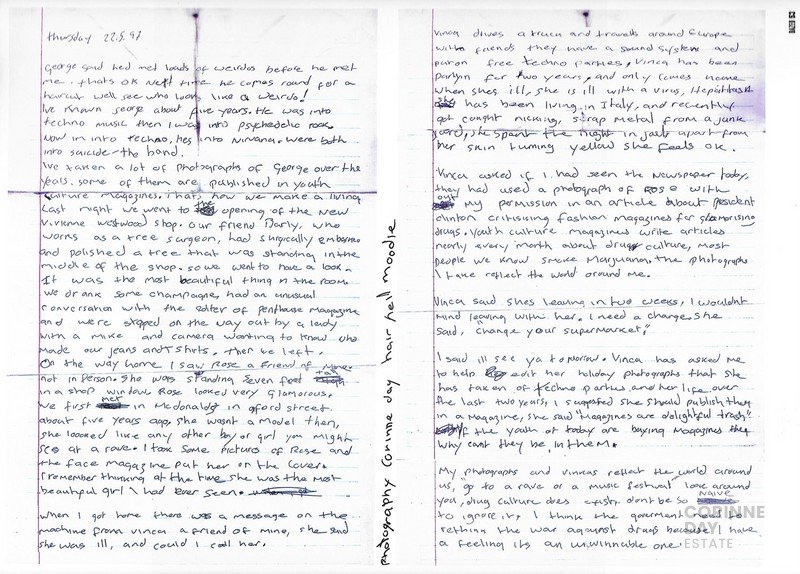 Thursday 22.5.97
George said hed met loads of weirdos before he met
me. thats OK next time he comes round for a
haircut well see who looks like a weirdo!
Ive known George about five years. He was into
techno music then I was into psychedelic rock
Now im into techno, hes into Nirvana. were both
into suicide-the band.
Ive taken a lot of photographs of George over the
years. some of them are published in youth
culture magazines. Thats how we make a living
Last night we went to the opening of the new
Vivienne Westwood shop. Our friend Darly, who
works as a tree surgeon, had surgically embalmed
and polished a tree that was standing in the
middle of the shop. so we went to have a look.
It was the most beautiful thing in the room
we drank some champagne, had an unusual
conversation with the editor of penthouse magazine
and were stopped on the way out by a lady
with a mike and camera wanting to know who
made our jeans and T shirts. Then we left.
On the way home I saw Rose a friend of mine.
not in person. She was standing seven foot tall
in a shop window. Rose looked very glamorous.
we first met in McDonalds in oxford street
about five years ago, she wasnt a model then,
she looked like any other boy or girl you might
see at a rave. I took some pictures of Rose and
the face magazine put her on the cover.
I remember thinking at the time she was the most
beautiful girl I had ever seen.
When I got home there was a message on the
machine from Vinca a friend of mine, she said
she was ill, and could I call her.
photography corinne day hair neil moodie
Vinca drives a truck and travells around Europe
with friends they have a sound system and
put on free techno parties, Vinca has been
partyin for two years, and only comes home
when shes ill, she is ill with a virus, Hepatitis A
has been living in Italy, and recently
got caught nicking, scrap metal from a junk
yard, she spent the night in jail apart from
her skin turning yellow she feels ok.
Vinca asked if I had seen the newspaper today,
they had used a photograph of Rose with
out my permission in an article about president
clinton critisising fashion magazines for glamorising
drugs. youth culture magazines write articles
nearly every month about drug culture, most
people we know smoke Marjuana. The photographs
I take reflect the world around me.
Vinca said shes leaving in two weeks, I wouldnt
mind leaving with her. I need a change. She
said, "change your supermarket".
I said ill see ya tomorrow. Vinca has asked me
to help edit her holiday photographs that she
has taken of techno parties and her life over
the last two years, I suggested she should publish them
in a magazine, she said "magazines are delightful trash"
if the youth of today are buying magazines
why cant they be in them.
My photographs and Vincas reflect the world around
us, go to a rave or a music festival look around
you, drug culture does exist, dont be so naive
to ignore it, I think the goverment need to
rethink the war against drugs because I have
a feeling its an unwinnable one.
CORINNE
DAY
ESTATE